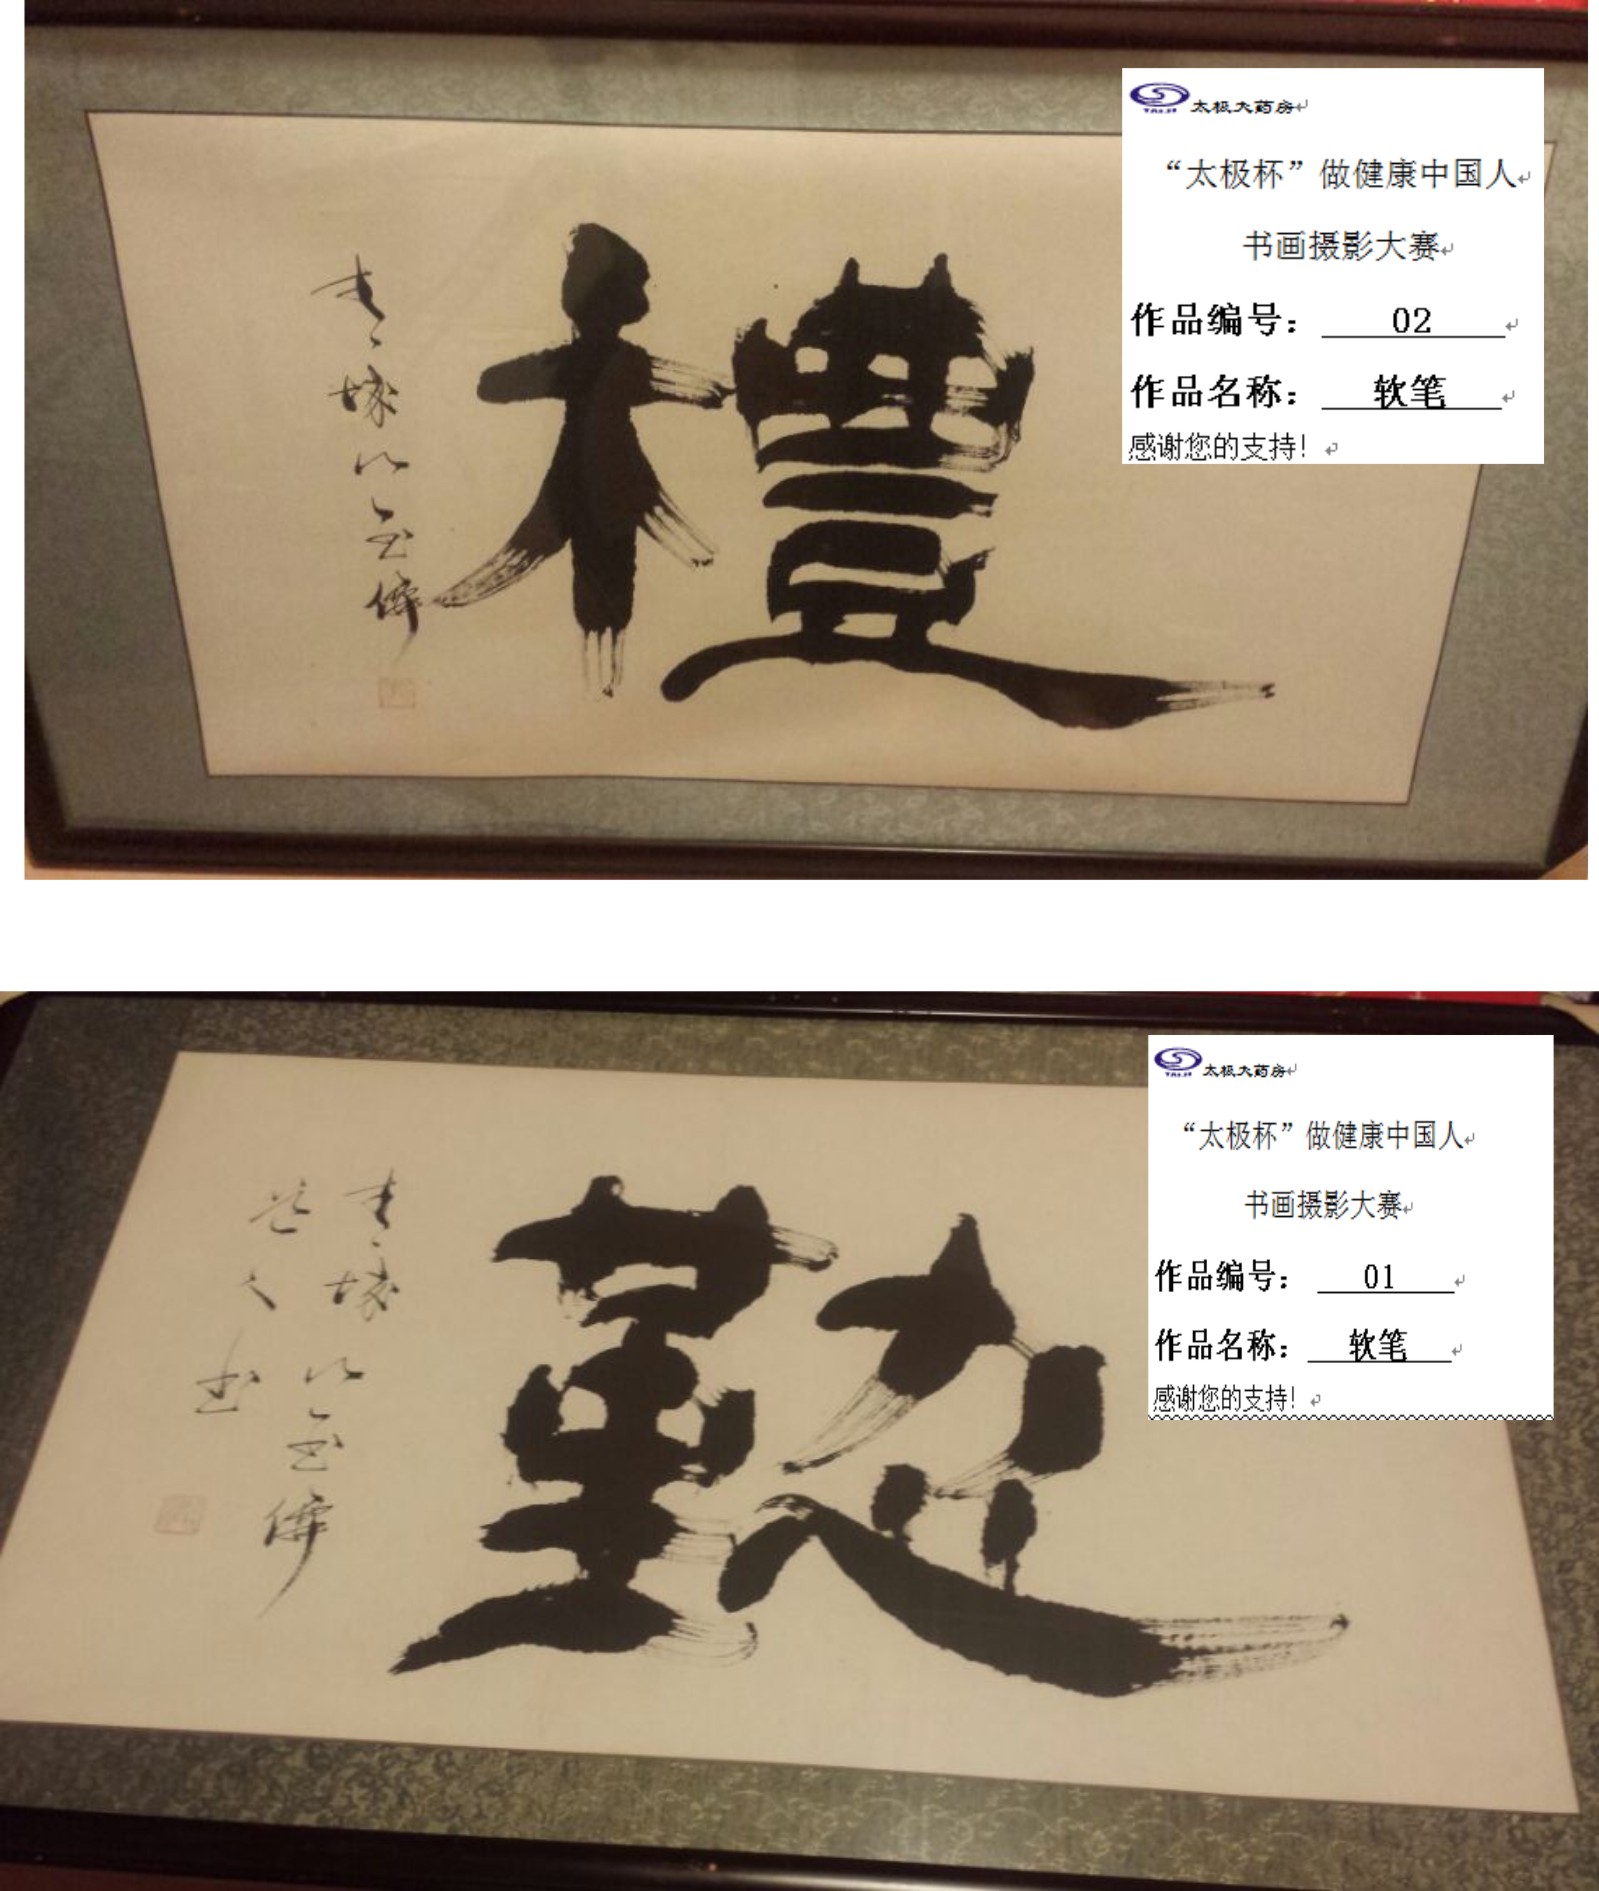 禮
青城山玉佛
TAIJI 太极大药房
“太极杯”做健康中国人
书画摄影大赛
作品编号： 02
作品名称： 软笔
感谢您的支持！
勤
青城山玉佛
TAIJI 太极大药房
“太极杯”做健康中国人
书画摄影大赛
作品编号： 01
作品名称： 软笔
感谢您的支持！